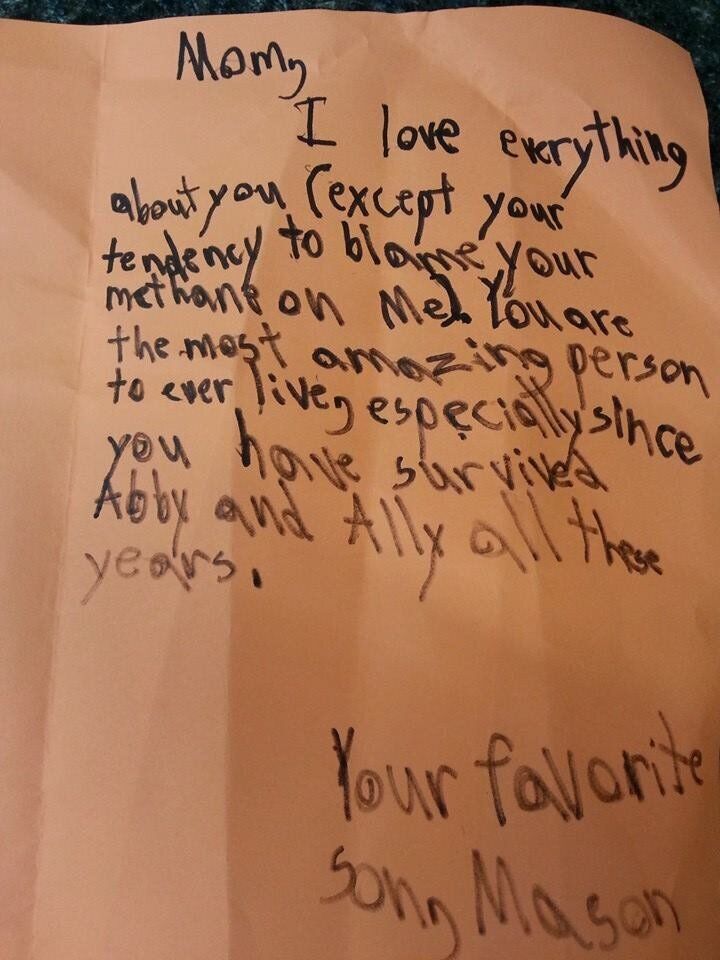 Mom,
I love everything
about you (except your
tendency to blame your
methane on me). You are
the most amazing person
to ever live, especially since
you have survived
Abby and Ally all these
years.
Your favorite
son, Mason